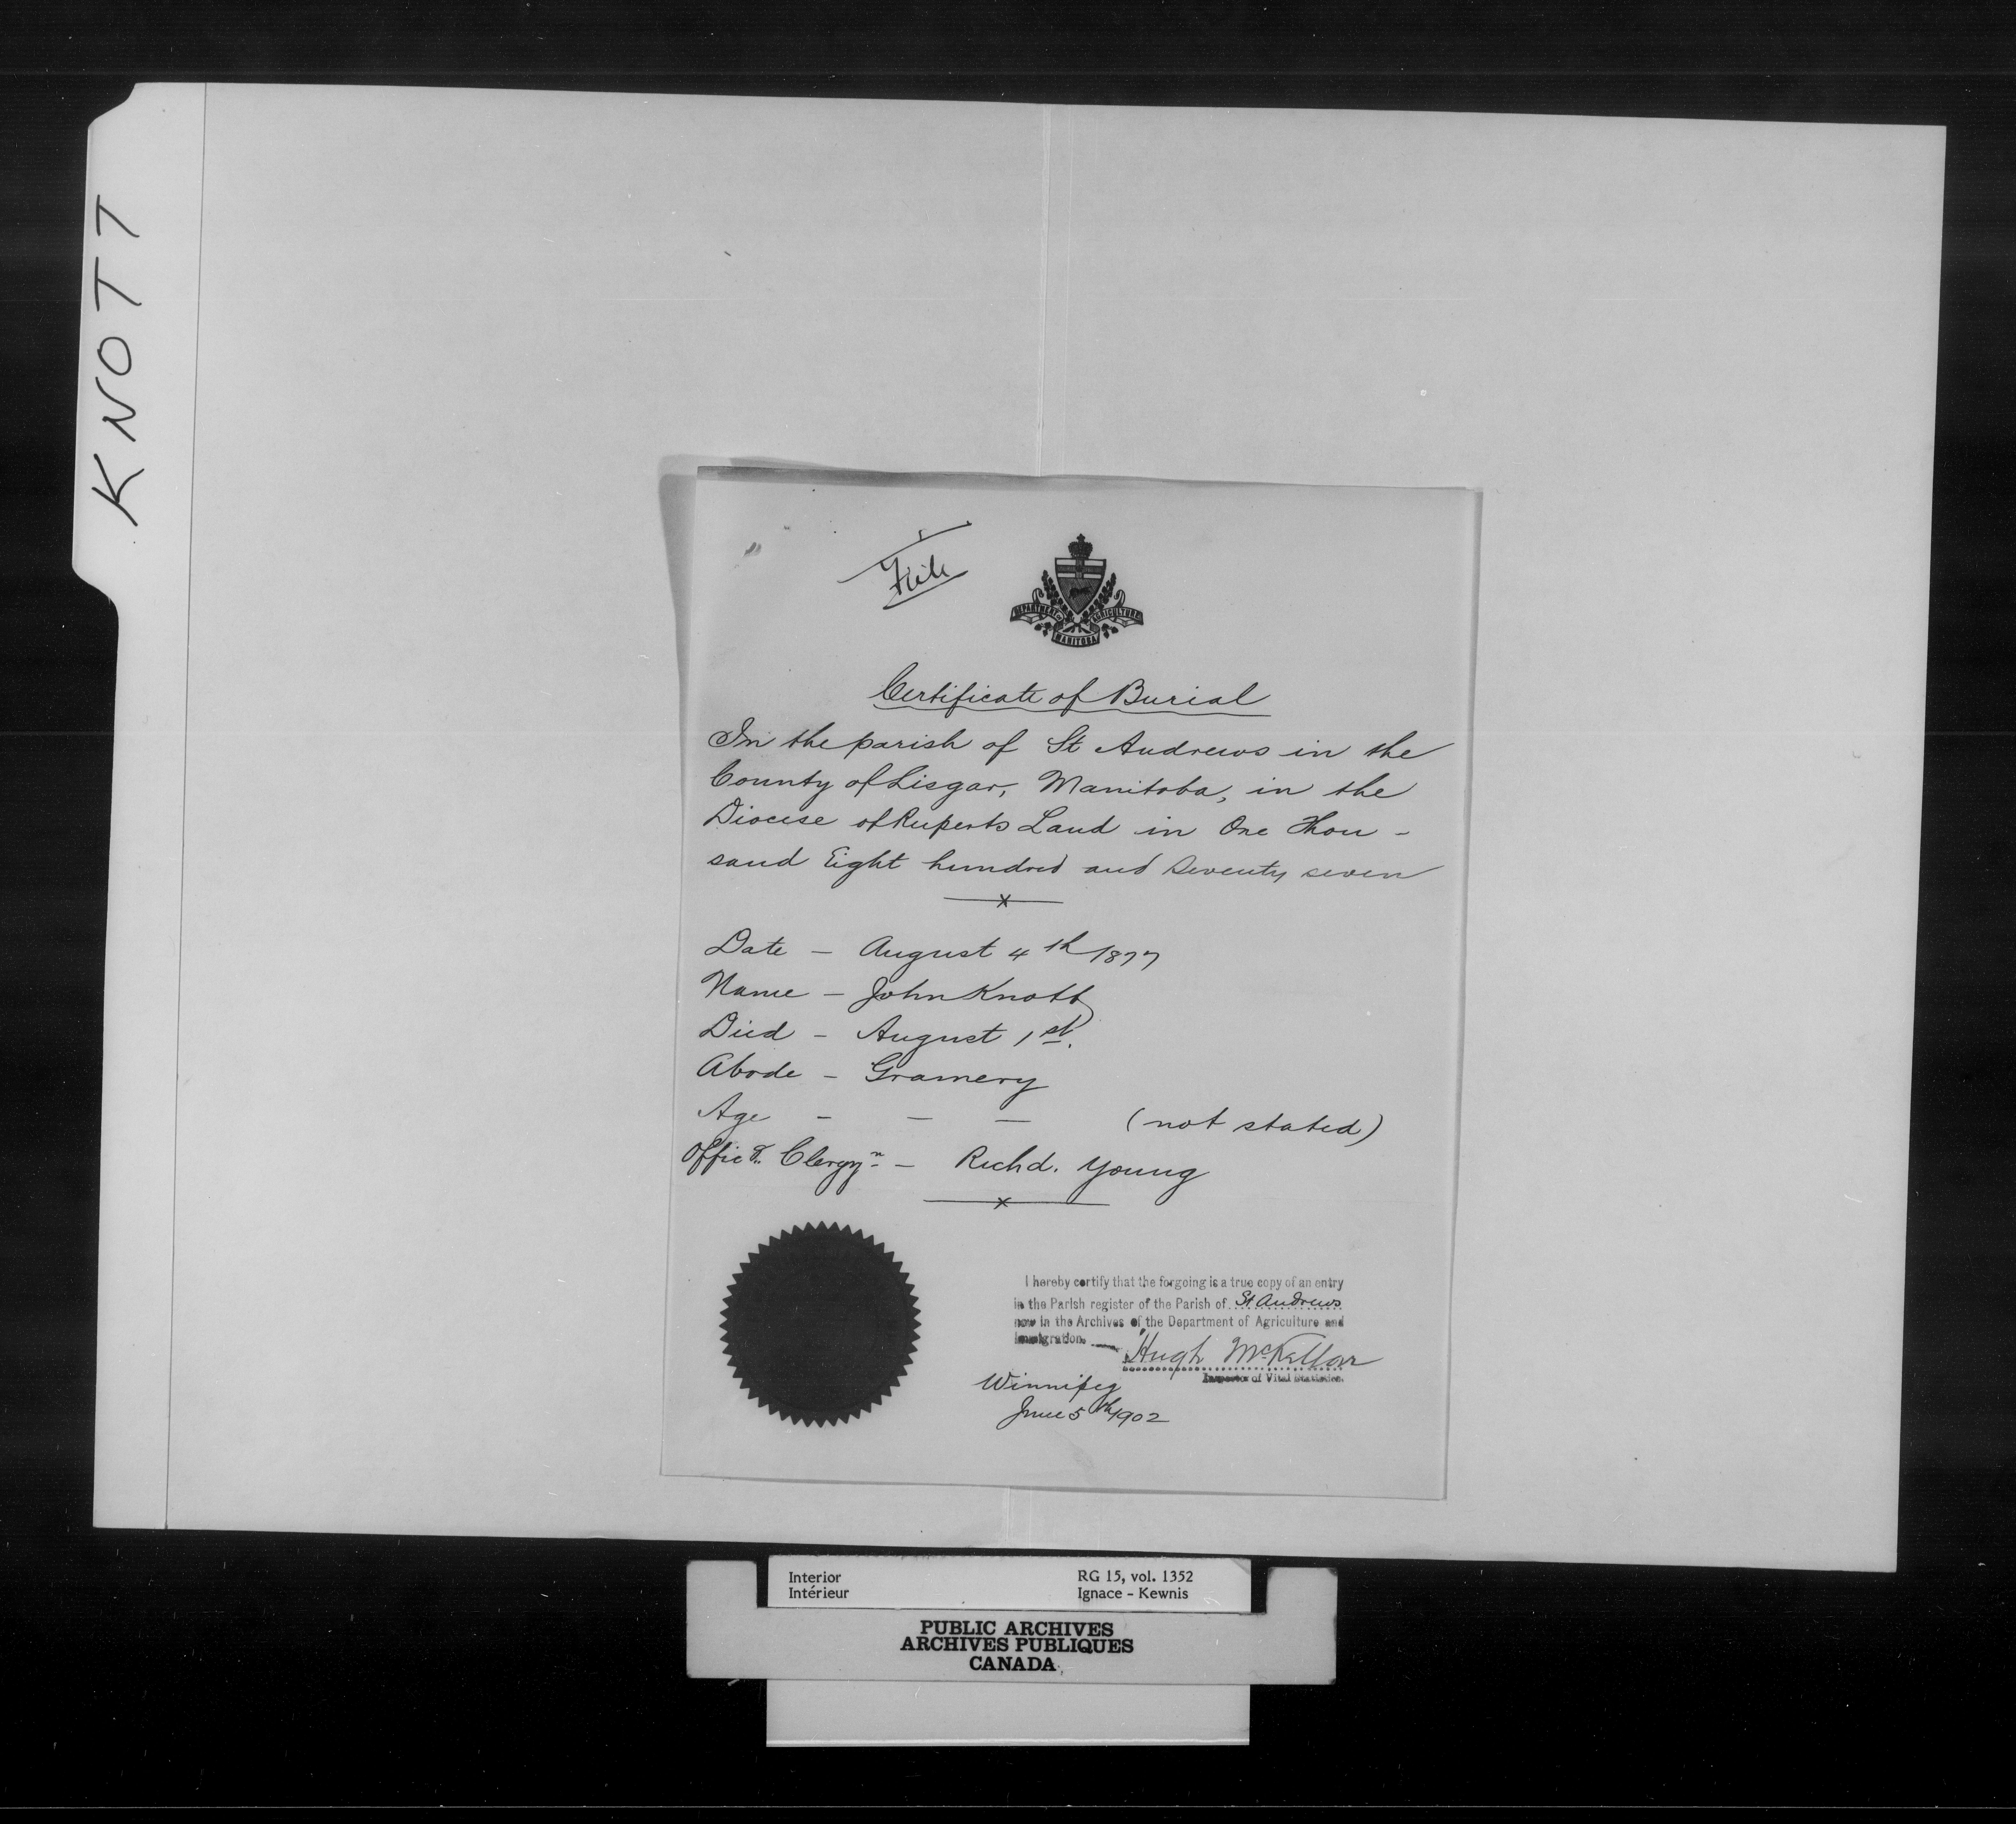 KNOTT
File
DEPARTMENT OF AGRICULTURE
MANITOBA
Certificate of Burial
In the parish of St Andrews in the
County of Lisgar, Manitoba, in the
Diocese of Ruperts Land in One Thou -
sand Eight hundred and Seventy seven
x
Date - August 4th 1877
Name - John Knott
Died - August 1st.
Abode - Gramery
Age - - - (not stated)
Offic g. Clergyn. - Richd. Young
x
I hereby certify that the forgoing is a true copy of an entry
in the Parish register of the Parish of St Andrews
now in the Archives of the Department of Agriculture and
Immigration.
Hugh McKellar
Inspector of Vital Statistics.
Winnipeg
June 5th 1902
Interior RG 15, vol. 1352
Intérieur Ignace - Kewnis
PUBLIC ARCHIVES
ARCHIVES PUBLIQUES
CANADA